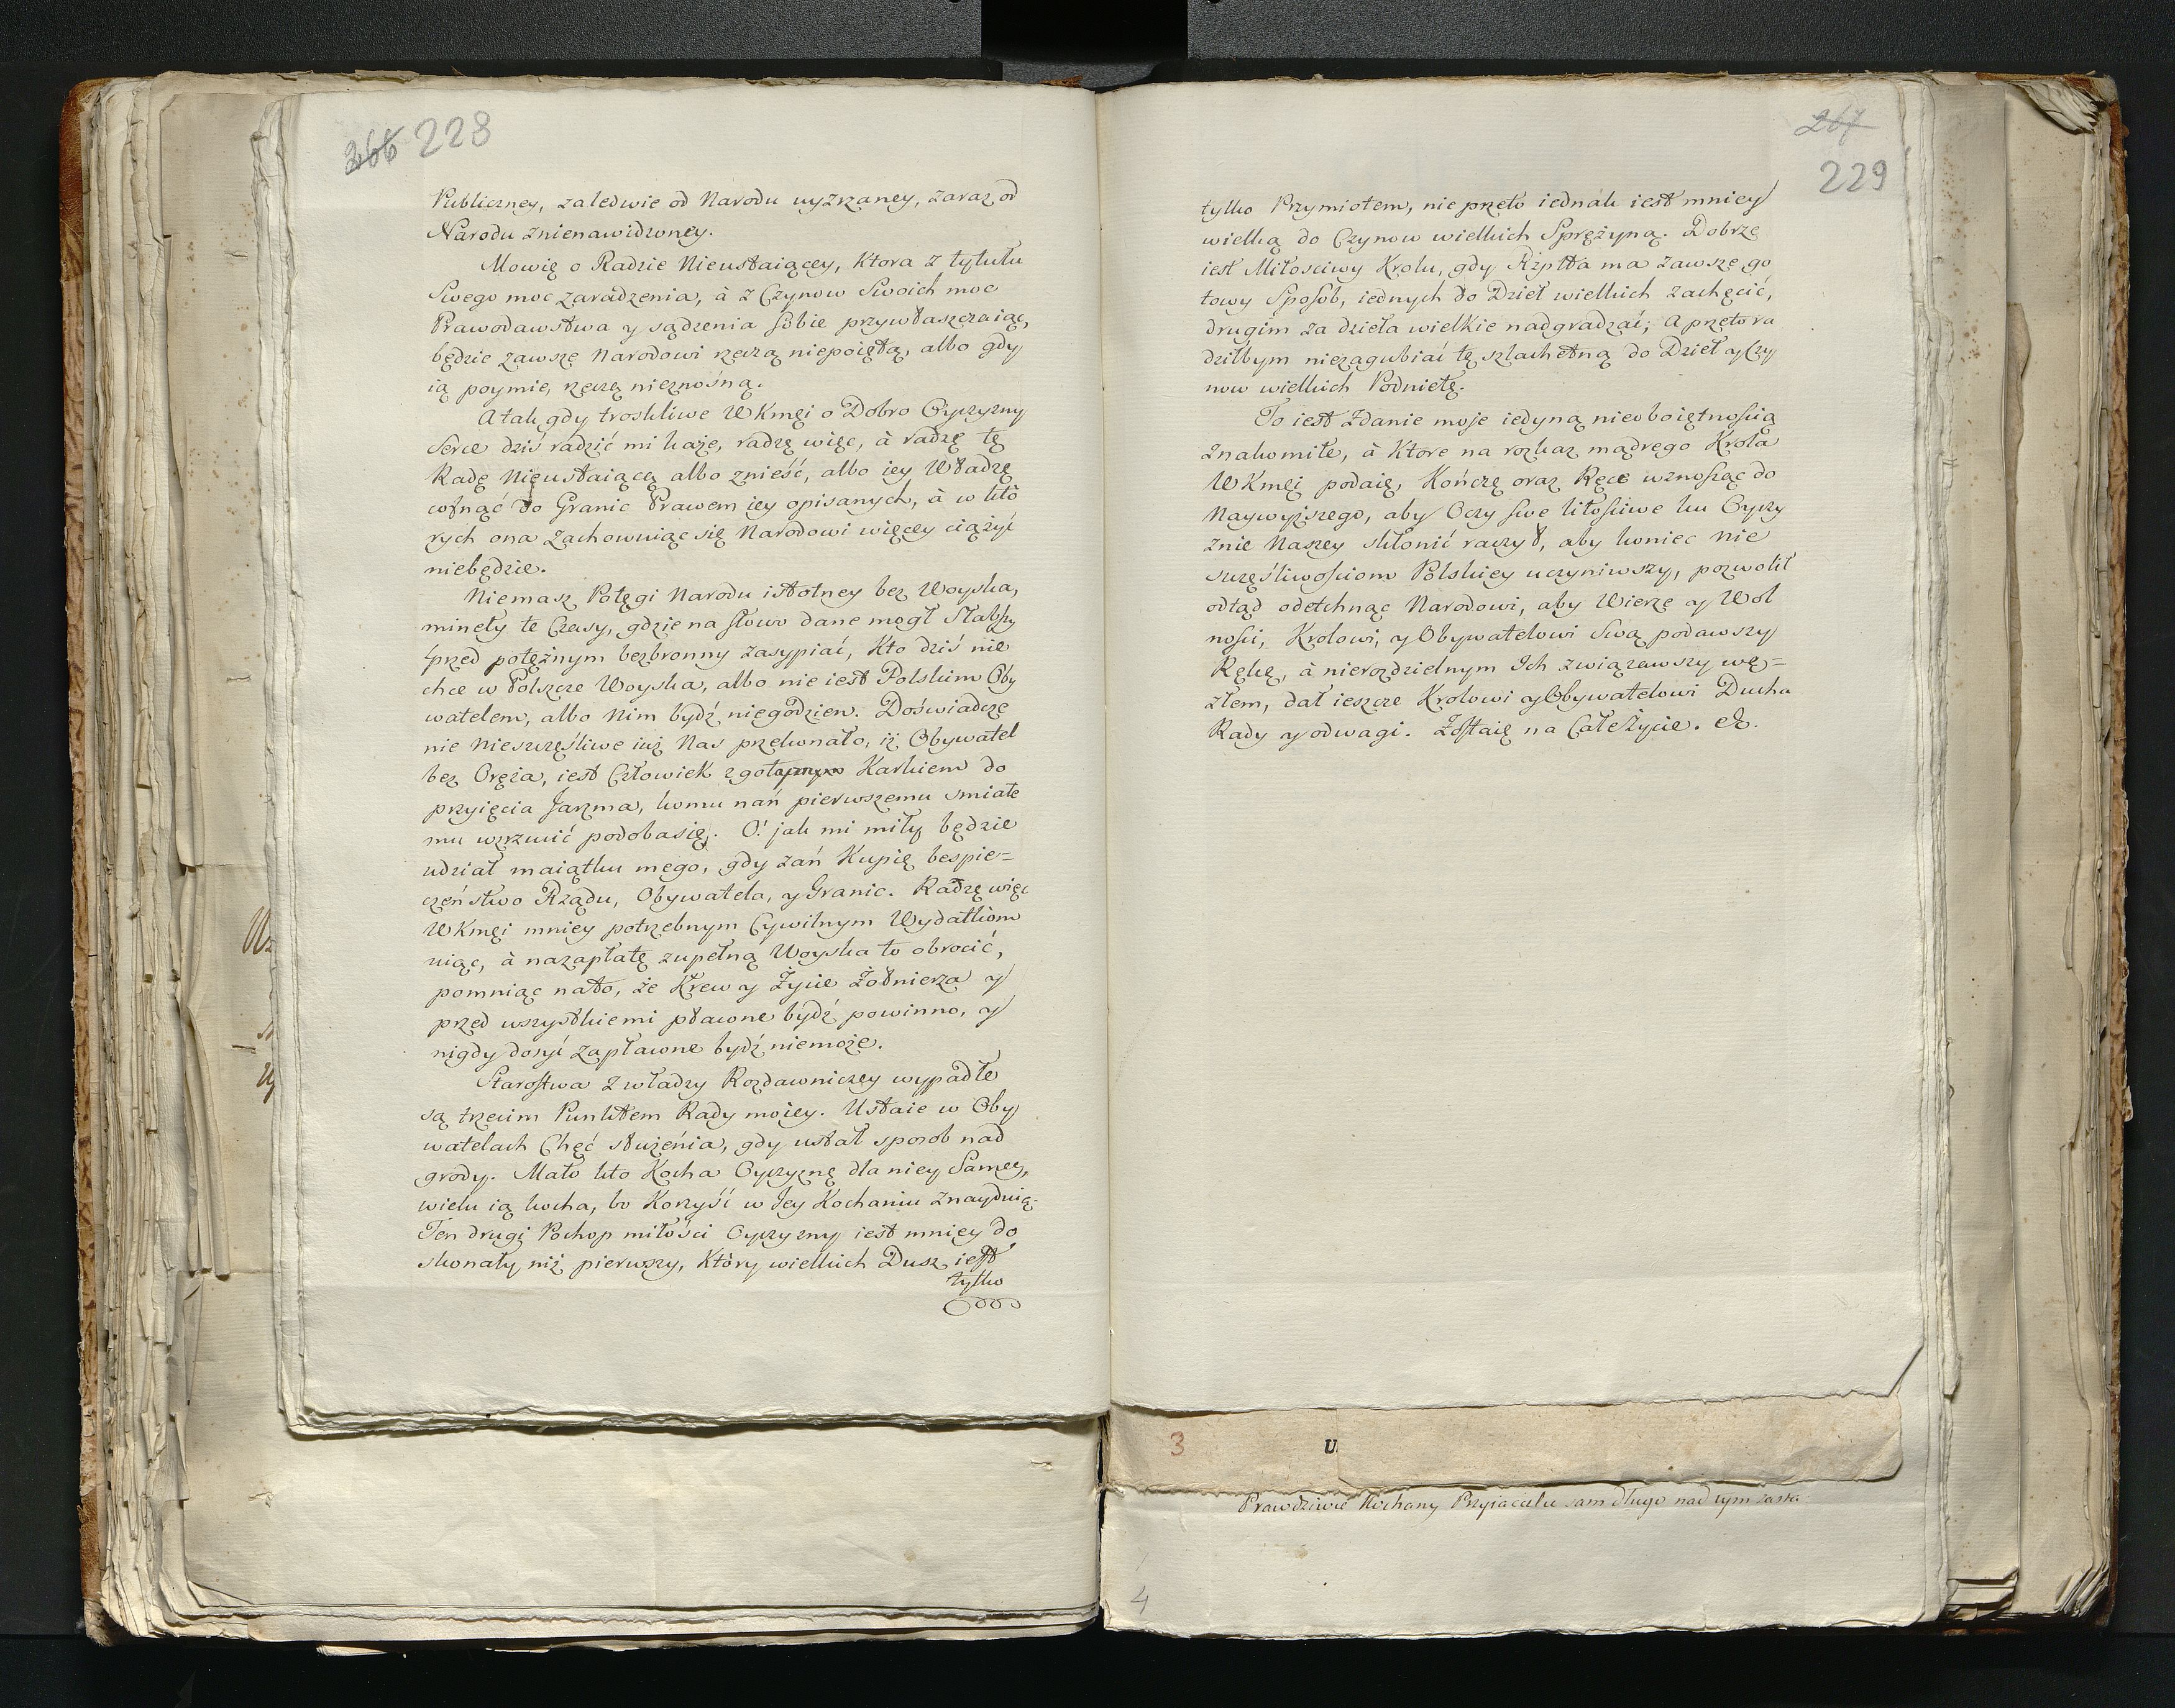 266 228
Publiczney, zaledwie od Narodu uyzrzaney, zaraz od
Narodu znienawidzoney.
Mowię o Radzie Nieustaiącey, Ktora z tytułu
Swego moc zarádzenia, à z Czynow Swoich moc
Prawodawstwa y sądzenia sobie przywłaszczaiąc,
będzie zawszę Narodowi rzeczą niepoiętą, albo gdy
ią poymie, rzeczą nieznośną.
A tak gdy troskliwe WKmci o Dobro Oyczyzny
Serce dziś radzić mi każe, radzę więc, à radzę tę
Radę Nieustaiącą albo znieść, albo iey Władzę
cofnąć do Granic Prawem iey opisanych, à w któ
rych ona zachowuiąc się Narodowi więcey ciążyć
niebędzie.
Niemasz Potęgi Narodu istotney bez Woyska,
mineły te Czasy, gdzie na słowo dane mogł Słabszy
przed potężnym bezbronny zasypiać, Kto dziś nie
chce w Polszcze Woyska, albo nie iest Polskim Oby
watelem, albo Nim bydź niegodzien. Doświadcze
nie nieszczęśliwe iuż Nas przekonało, iż Obywatel
bez Oręża, iest Człowiek z gołym Karkiem do
przyięcia Jarzma, komu nań pierwszemu smiałe
mu wrzucić podobasię. O! jak mi miły będzie
udział maiątku mego, gdy zań Kupię bespie=
czeństwo Rządu, Obywatela, y Granic. Radzę więc
WKmci mniey potrzebnym Cywilnym Wydatkom
uiąc, à nazapłatę zupełną Woyska to obrocić,
pomniąc nato, że Krew y Życie Żołnierza y
przed wszystkiemi płacone bydź powinno, y
nigdy dosyć zapłacone bydź niemoże.
Starostwa z władzy Rozdawniczey wypadłe
są trzecim Punktem Rady moiey. Ustaie w Oby
watelach Chęć służenia, gdy ustał sposob nad
grody. Mało kto Kocha Oyczyznę dla niey Samey,
wielu ią kocha, bo Korzyść w Jey Kochaniu znayduią.
Ten drugi Pochop miłości Oyczyzny iest mniey do
skonały niż pierwszy, Który wielkich Dusz iest
tylko
267
229
tylko Przymiotem, nie przeto iednak iest mniey
wielką do Czynow wielkich Sprężyną. Dobrze
iest Miłosciwy Krolu, gdy Rzptta ma zawszę go
towy Sposob, iednych do Dzieł wielkich zachęcić,
drugim za dzieła wielkie nadgradzać; a przeto ra
dziłbym niezagubiać tę szlachetną do Dzieł y Czy
now wielkich Podnietę.
To iest Zdanie moje iedyną nieoboiętnością
znakomite, à Ktore na rozkaz mądrego Krola
WKmci podaię, Kończę oraz Ręce wznosząc do
Naywyższego, aby Oczy swe litościwe ku Oyczy
znie Naszey skłonić raczył, aby koniec nie
szczęśliwościom Polskiey uczyniwszy, pozwolił
odtąd odetchnąć Narodowi, aby Wierze y Wol
ności, Krolowi, y Obywatelowi Swą podawszy
Rękę, à nierozdzielnym Ich związawszy wę=
złem, dał ieszcze Krolowi y Obywatelowi Ducha
Rady y odwagi. Zostaię na Całe życie. &c.
3 U
Prawdziwie Kochany Przyiacielu sam długo nad tym zasta
4